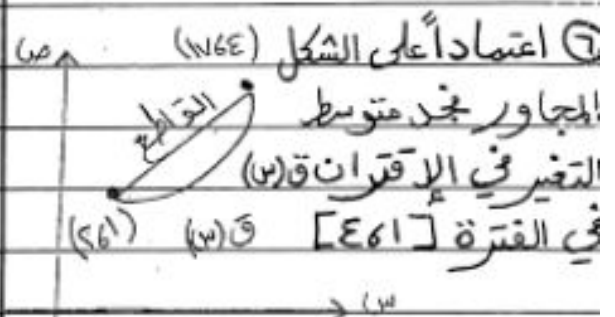 ٦ اعتماداً على الشكل
المجاور نجد متوسط
التغير في الإقتران ق(س)
في الفترة [١،٤]
ص
(٤،١٧)
القاطع
(١،٢)
ق(س)
س